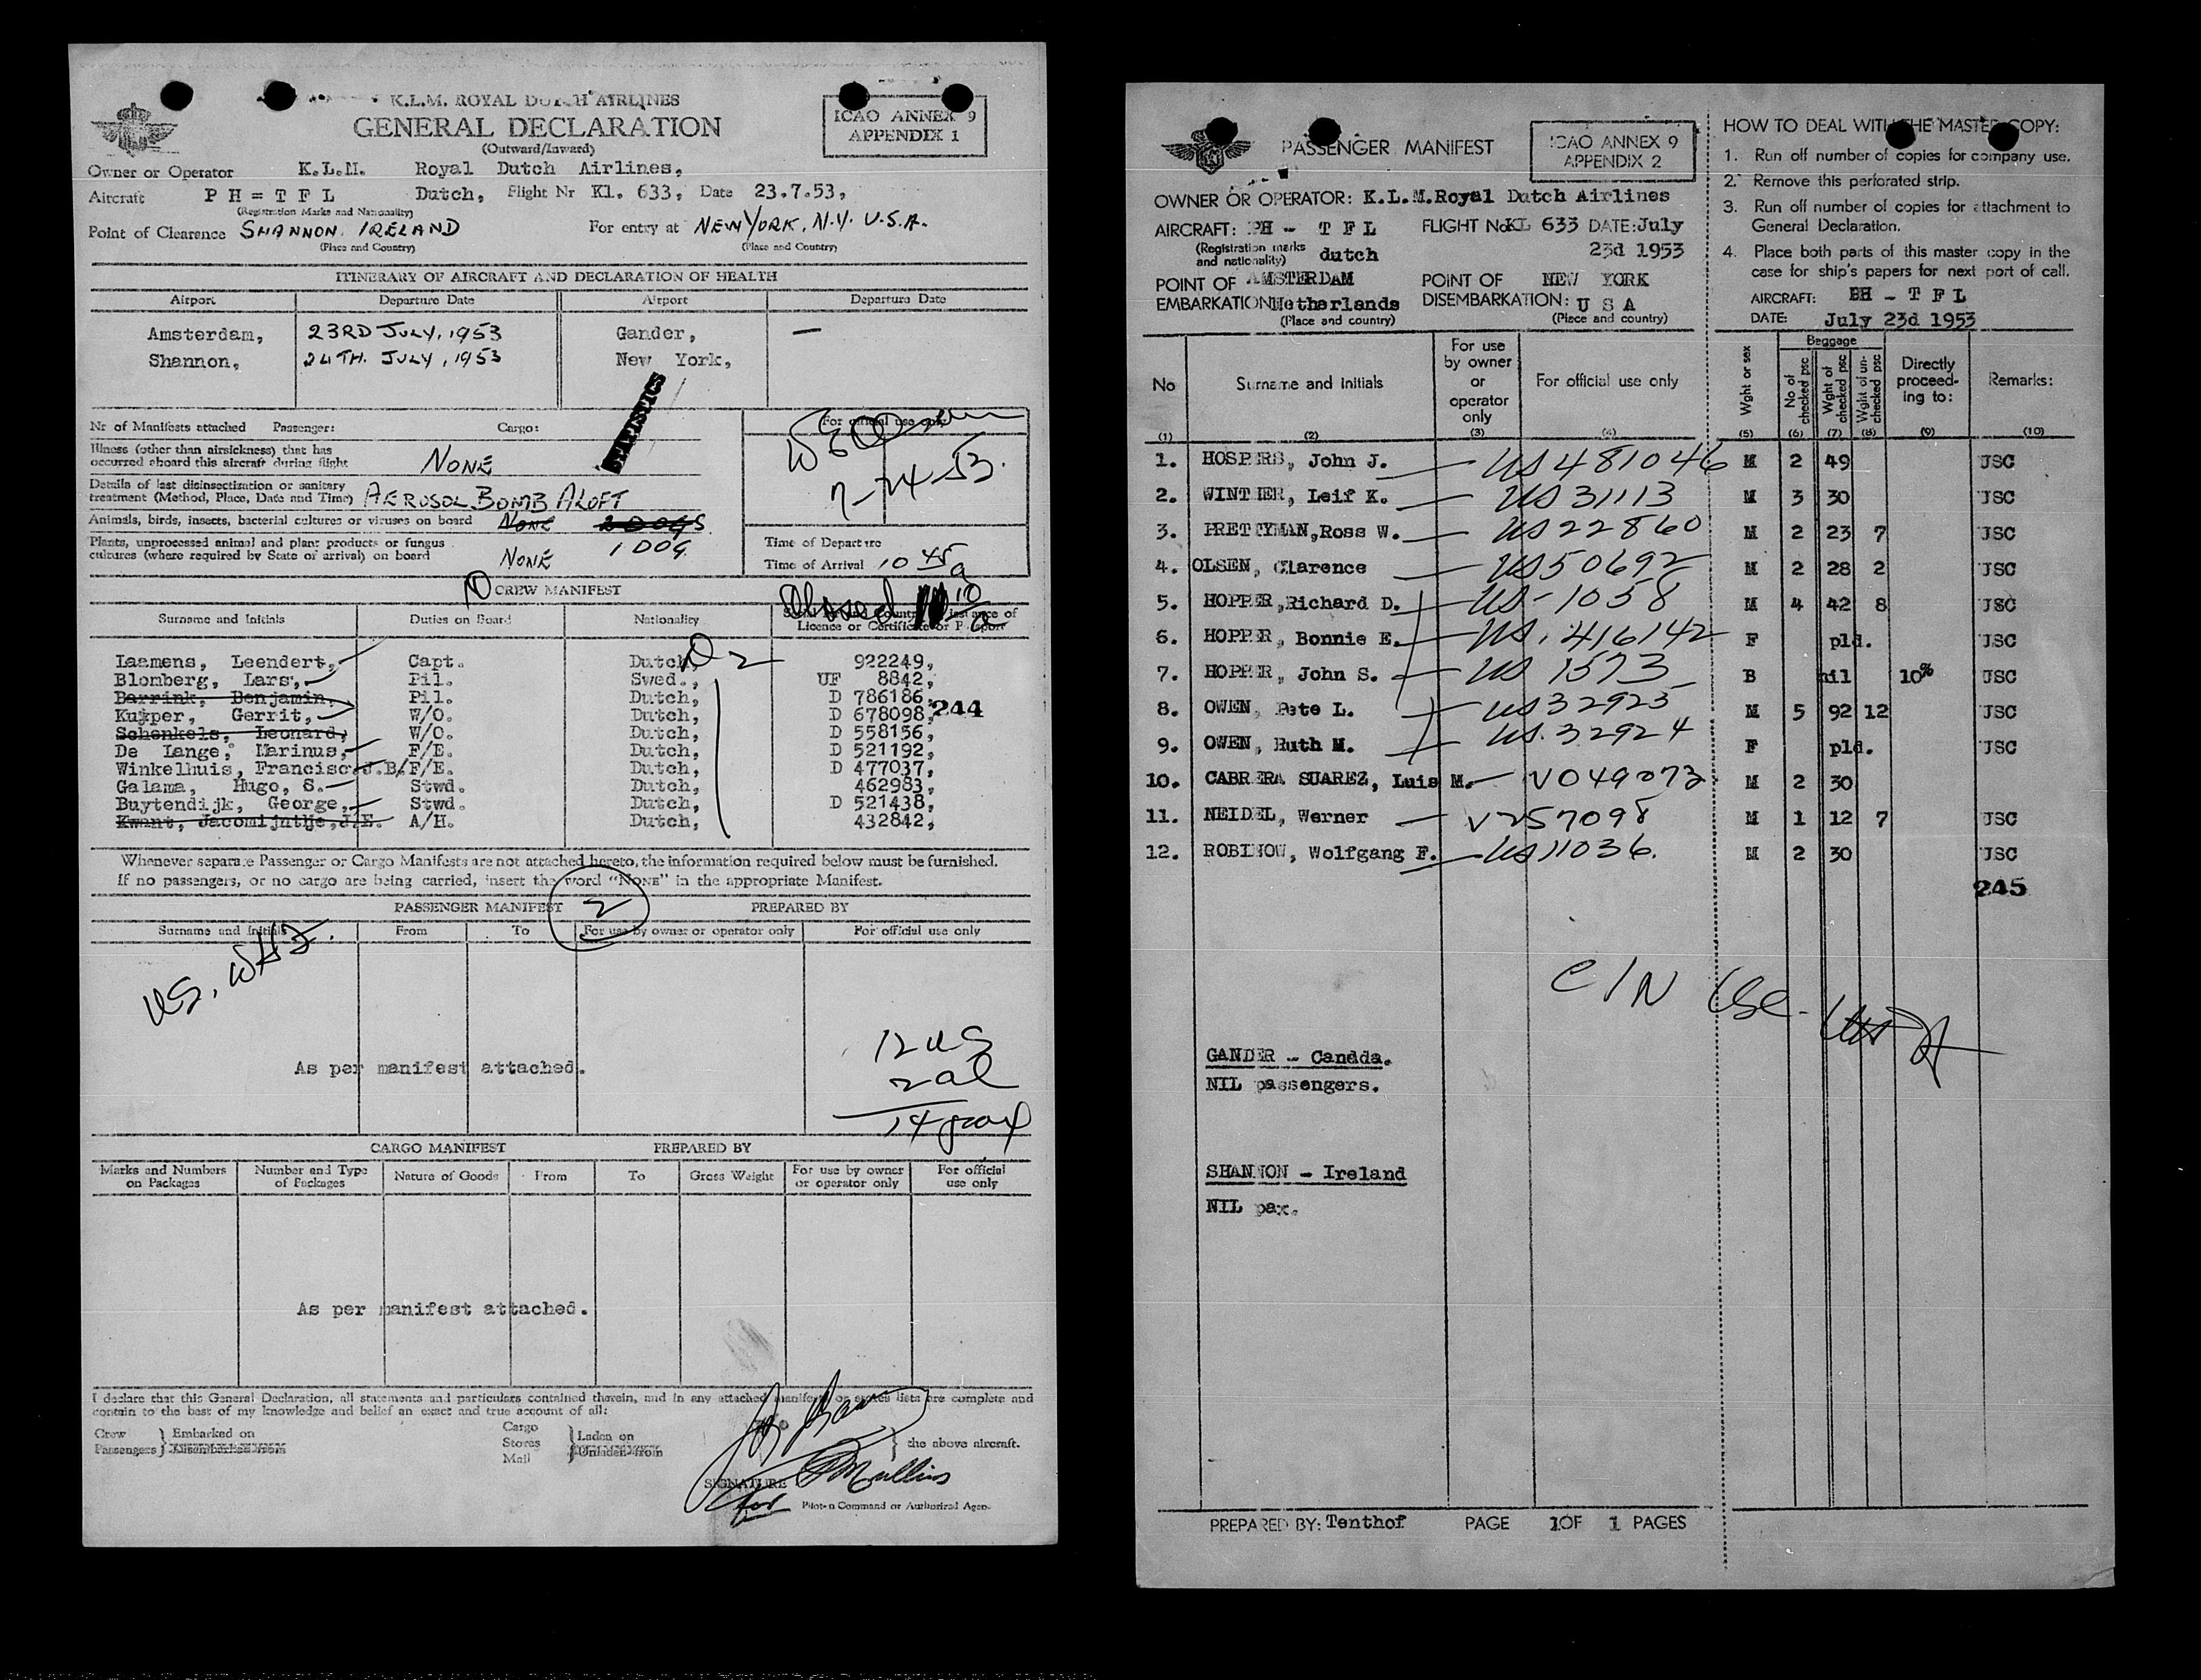 K.L.M. ROYAL DUTCH AIRLINES
GENERAL DECLARATION
(Outward/Inward)
ICAO ANNEX 9
APPENDIX 1
Owner or Operator K.L.M. Royal Dutch Airlines,
Aircraft PH=TFL Dutch, Flight Nr Kl. 633, Date 23.7.53,
(Registration Marks and Nationality)
Point of Clearance SHANNON. IRELAND For entry at NEW YORK, N.Y. U.S.A.
(Place and Country) (Place and Country)
ITINERARY OF AIRCRAFT AND DECLARATION OF HEALTH
Airport Departure Date Airport Departure Date
Amsterdam, 23RD JULY, 1953 Gander, —
Shannon, 24TH. JULY, 1953 New York,
STATISTICS
Nr of Manifests attached Passenger: Cargo: For official use only
Illness (other than airsickness) that has
occurred aboard this aircraft during flight NONE
7-24-53.
Details of last disinsectization or sanitary
treatment (Method, Place, Date and Time) AEROSOL BOMB ALOFT
Animals, birds, insects, bacterial cultures or viruses on board NONE 2 DOGS
1 DOG
Plants, unprocessed animal and plant products or fungus
cultures (where required by State of arrival) on board NONE
Time of Departure
Time of Arrival 10 45 a
CREW MANIFEST
Closed 10 a
Surname and Initials Duties on Board Nationality
Licence or Certificate or Passport
Laamens, Leendert, Capt. Dutch, 922249,
2
Blomberg, Lars, Pil. Swed., UF 8842,
Barrink, Benjamin, Pil. Dutch, D 786186,
Kuyper, Gerrit, W/O. Dutch, D 678098,
244
Schenkels, Leonard, W/O. Dutch, D 558156,
De Lange, Marinus, F/E. Dutch, D 521192,
Winkelhuis, Francisc.J.B. F/E. Dutch, D 477037,
Galama, Hugo, S. Stwd. Dutch, 462983,
Buytendijk, George, Stwd. Dutch, D 521438,
Kwant, Jacomijntje,J.E. A/H. Dutch, 432842,
Whenever separate Passenger or Cargo Manifests are not attached hereto, the information required below must be furnished.
If no passengers, or no cargo are being carried, insert the word "NONE" in the appropriate Manifest.
PASSENGER MANIFEST 2 PREPARED BY
Surname and Initials From To For use by owner or operator only For official use only
US,
12 US
As per manifest attached.
2 al
14
CARGO MANIFEST PREPARED BY
Marks and Numbers on Packages Number and Type of Packages Nature of Goods From To Gross Weight For use by owner or operator only For official use only
As per manifest attached.
I declare that this General Declaration, all statements and particulars contained therein, and in any attached manifests or stores lists are complete and
contain to the best of my knowledge and belief an exact and true account of all:
Crew Embarked on Cargo Laden on
Passengers Disembarked from Stores Unladen from the above aircraft.
Mail
SIGNATURE Mullins
for Pilot-in Command or Authorized Agent
PASSENGER MANIFEST
ICAO ANNEX 9
APPENDIX 2
OWNER OR OPERATOR: K.L.M.Royal Dutch Airlines
AIRCRAFT: PH - T F L FLIGHT No KL 633 DATE: July
(Registration marks and nationality) dutch 23d 1953
POINT OF EMBARKATION: AMSTERDAM Netherlands POINT OF DISEMBARKATION: NEW YORK U S A
(Place and country) (Place and country)
HOW TO DEAL WITH THE MASTER COPY:
1. Run off number of copies for company use.
2. Remove this perforated strip.
3. Run off number of copies for attachment to
General Declaration.
4. Place both parts of this master copy in the
case for ship's papers for next port of call.
AIRCRAFT: PH - T F L
DATE: July 23d 1953
No Surname and Initials For use by owner or operator only For official use only Wght or sex Baggage No of checked psc Wght of checked psc Wght of unchecked psc Directly proceeding to: Remarks:
(1) (2) (3) (4) (5) (6) (7) (8) (9) (10)
1. HOSPERS, John J. — US481046 M 2 49 USC
2. WINTHER, Leif K. — US31113 M 3 30 USC
3. PRETTYMAN,Ross W. — US22860 M 2 23 7 USC
4. OLSEN, Clarence — US50692 M 2 28 2 USC
5. HOPPER,Richard D. — US-1058 M 4 42 8 USC
6. HOPPER, Bonnie E. — US.416142 F pld. USC
7. HOPPER, John S. — US 1573 B nil 10% USC
8. OWEN, Pete L. US32923 M 5 92 12 USC
9. OWEN, Ruth M. US.32924 F pld. USC
10. CABRERA SUAREZ, Luis M. — V049073 M 2 30
11. NEIDEL, Werner — V257098 M 1 12 7 USC
12. ROBINOW, Wolfgang F. — US11036. M 2 30 USC
245
C/N
GANDER - Candda.
NIL passengers.
SHANNON - Ireland
NIL pax.
PREPARED BY: Tenthof PAGE 1 OF 1 PAGES